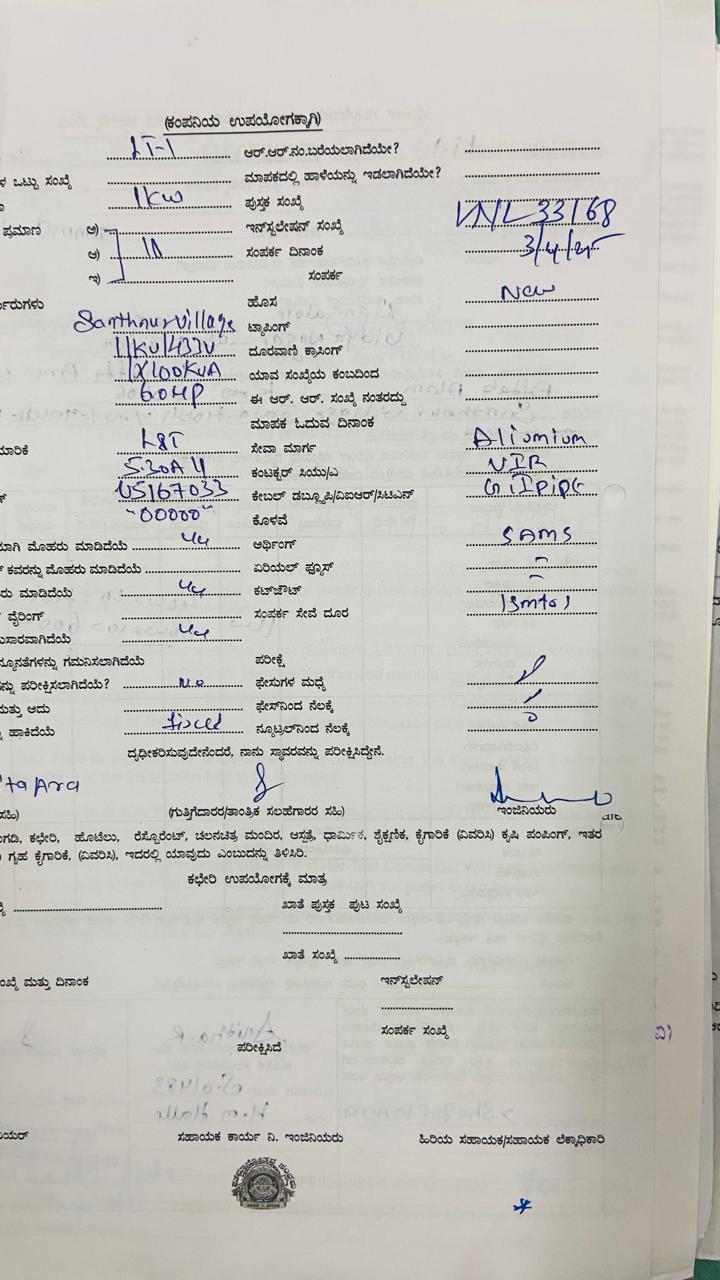 (ಕಂಪನಿಯ ಉಪಯೋಗಕ್ಕಾಗಿ)
LT-1 ಆರ್.ಆರ್.ನಂ.ಬರೆಯಲಾಗಿದೆಯೇ?
ಳ ಒಟ್ಟು ಸಂಖ್ಯೆ ಮಾಪಕದಲ್ಲಿ ಹಾಳೆಯನ್ನು ಇಡಲಾಗಿದೆಯೇ?
1KW ಪುಸ್ತಕ ಸಂಖ್ಯೆ
ಪ್ರಮಾಣ ಅ) ಇನ್‌ಸ್ಟಲೇಷನ್ ಸಂಖ್ಯೆ VNL33168
ಆ) ಸಂಪರ್ಕ ದಿನಾಂಕ 3/4/25
ಇ) ಸಂಪರ್ಕ
ಹೊಸ New
Santhnur village ಟ್ಯಾಪಿಂಗ್
11KV/433V ದೂರವಾಣಿ ಕ್ರಾಸಿಂಗ್
1X100KVA ಯಾವ ಸಂಖ್ಯೆಯ ಕಂಬದಿಂದ
60HP ಈ ಆರ್. ಆರ್. ಸಂಖ್ಯೆ ನಂತರದ್ದು
ಮಾಪಕ ಓದುವ ದಿನಾಂಕ
L&T ಸೇವಾ ಮಾರ್ಗ Aliumium
5-30A ಕಂಟಕ್ಟರ್ ಸಿಯು/ಎ VIR
U5167033 ಕೇಬಲ್ ಡಬ್ಲೂಪಿ/ವಿಐಆರ್/ಸಿಟಿಎನ್ GI Pipe
"00000" ಕೊಳವೆ
ಮಾಗಿ ಮೊಹರು ಮಾಡಿದೆಯೆ ಅರ್ಥಿಂಗ್ SAMS
ಕವರನ್ನು ಮೊಹರು ಮಾಡಿದೆಯೆ ಏರಿಯಲ್ ಫ್ಯೂಸ್ -
ರು ಮಾಡಿದೆಯೆ ಕಟ್‌ಔಟ್ -
ವೈರಿಂಗ್ ಸಂಪರ್ಕ ಸೇವೆ ದೂರ
ುಸಾರವಾಗಿದೆಯೆ
ನ್ಯೂನತೆಗಳನ್ನು ಗಮನಿಸಲಾಗಿದೆಯೆ ಪರೀಕ್ಷೆ
ನ್ನು ಪರೀಕ್ಷಿಸಲಾಗಿದೆಯೆ? No ಫೇಸುಗಳ ಮಧ್ಯೆ
ಮತ್ತು ಅದು ಫೇಸ್‌ನಿಂದ ನೆಲಕ್ಕೆ
ಹಾಕಿದೆಯೆ fixed ನ್ಯೂಟ್ರಲ್‌ನಿಂದ ನೆಲಕ್ಕೆ 0
ದೃಢೀಕರಿಸುವುದೇನೆಂದರೆ, ನಾನು ಸ್ಥಾವರವನ್ನು ಪರೀಕ್ಷಿಸಿದ್ದೇನೆ.
ta Ara
ಸಹಿ) (ಗುತ್ತಿಗೆದಾರರ/ತಾಂತ್ರಿಕ ಸಲಹೆಗಾರರ ಸಹಿ) ಇಂಜಿನಿಯರು
ಗಡಿ, ಕಛೇರಿ, ಹೊಟೆಲು, ರೆಸ್ಟೋರೆಂಟ್, ಚಲನಚಿತ್ರ ಮಂದಿರ, ಆಸ್ಪತ್ರೆ, ಧಾರ್ಮಿಕ, ಶೈಕ್ಷಣಿಕ, ಕೈಗಾರಿಕೆ (ವಿವರಿಸಿ) ಕೃಷಿ ಪಂಪಿಂಗ್, ಇತರ
ಗೃಹ ಕೈಗಾರಿಕೆ, (ವಿವರಿಸಿ), ಇದರಲ್ಲಿ ಯಾವುದು ಎಂಬುದನ್ನು ತಿಳಿಸಿರಿ.
ಕಛೇರಿ ಉಪಯೋಗಕ್ಕೆ ಮಾತ್ರ
ಖಾತೆ ಪುಸ್ತಕ ಪುಟ ಸಂಖ್ಯೆ
ಖಾತೆ ಸಂಖ್ಯೆ
ಂಖ್ಯೆ ಮತ್ತು ದಿನಾಂಕ ಇನ್‌ಸ್ಟಲೇಷನ್
ಸಂಪರ್ಕ ಸಂಖ್ಯೆ
ಪರೀಕ್ಷಿಸಿದೆ
ಿಯರ್ ಸಹಾಯಕ ಕಾರ್ಯ ನಿ. ಇಂಜಿನಿಯರು ಹಿರಿಯ ಸಹಾಯಕ/ಸಹಾಯಕ ಲೆಕ್ಕಾಧಿಕಾರಿ